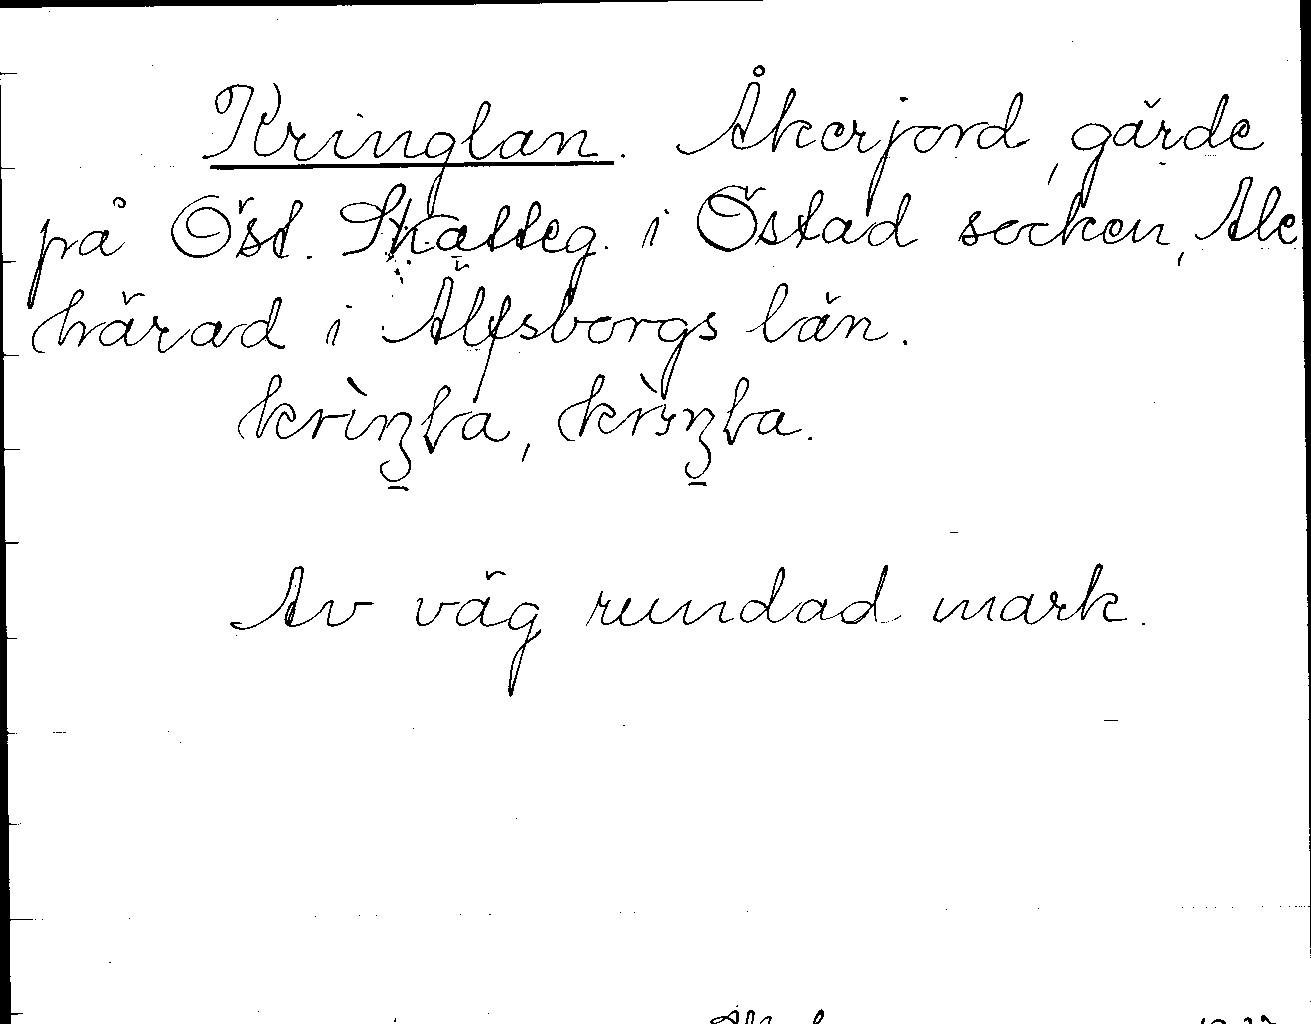 Kringlan. Åkerjord, gärde
på Öst. Skatteg. i Östad socken, Ale
härad i Älfsborgs län.
Av väg rundad mark.